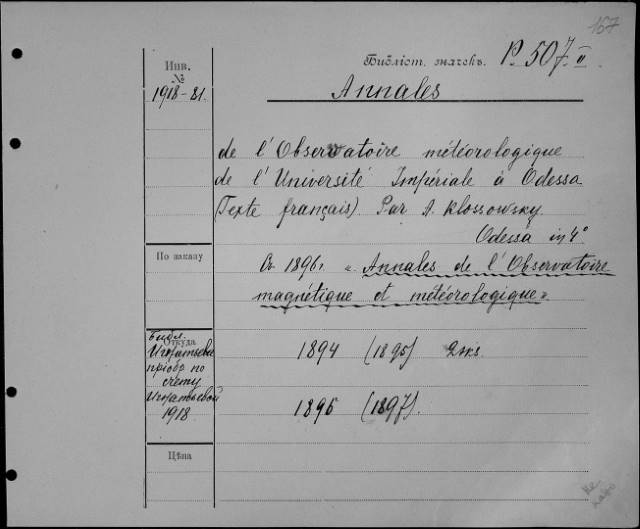 157
Инв.
№
1918-81.
Библіот. значекъ. P. 507. II
Annales
de l'Observatoire météorologique
de l'Université Impériale à Odessa
(Texte français). Par A. Klossowsky.
Odessa in 4°
По заказу
Съ 1896 г. "Annales de l'Observatoire
magnétique et météorologique".
Откуда
Библ.
Игнатьева
пріобр. по
счету
Игнатьевой
1918.
1894 (1895) 2 экз.
1896 (1897).
Цѣна